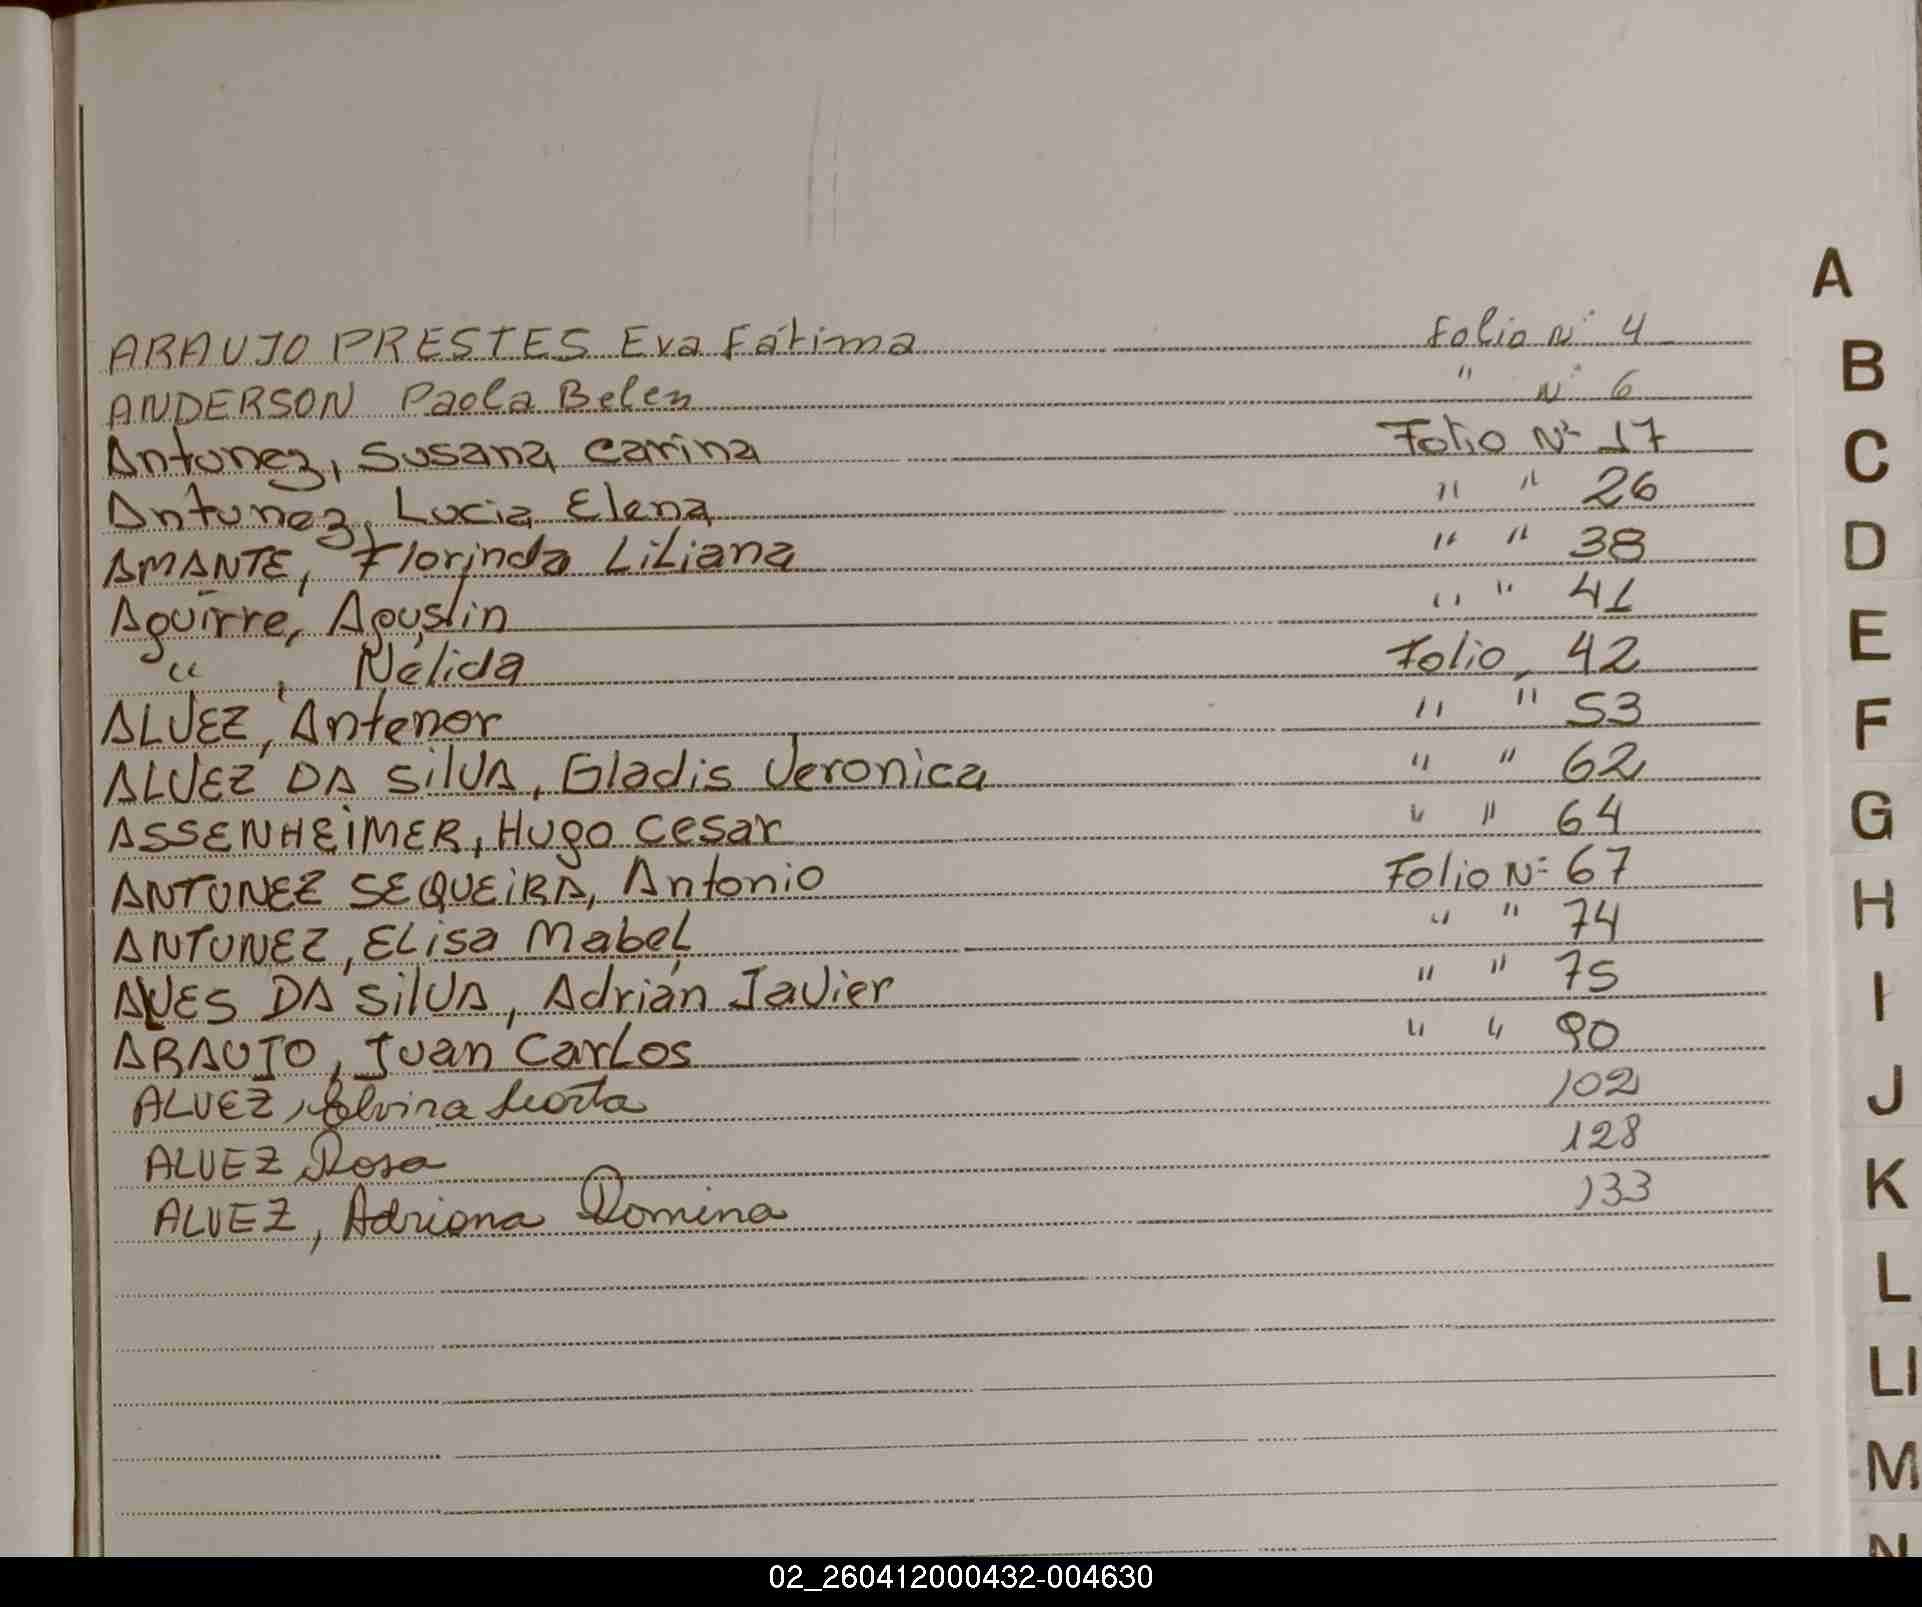 ARAUJO PRESTES Eva Fátima Folio Nº 4
ANDERSON Paola Belen " Nº 6
Antunez, Susana Carina Folio Nº 17
Antunez, Lucia Elena " " 26
AMANTE, Florinda Liliana " " 38
Aguirre, Agustin " " 41
" , Nélida Folio, 42
ALVEZ, Antenor " " 53
ALVEZ DA SILVA, Gladis Veronica " " 62
ASSENHEIMER, Hugo Cesar " " 64
ANTUNEZ SEQUEIRA, Antonio Folio Nº 67
ANTUNEZ, Elisa Mabel " " 74
ALVES DA SILVA, Adrián Javier " " 75
ARAUJO, Juan Carlos " " 90
ALVEZ, 102
ALVEZ Rosa 128
ALVEZ, Adriana Romina 133
A
B
C
D
E
F
G
H
I
J
K
L
Ll
M
N
02_260412000432-004630